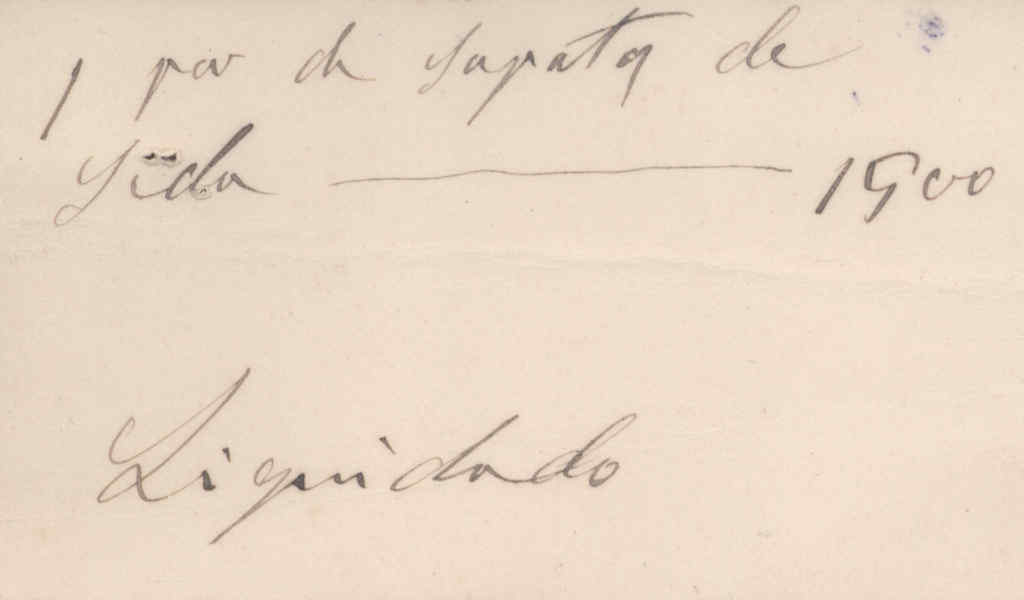 1 par de sapatos de
sêda — 1900
Liquidado